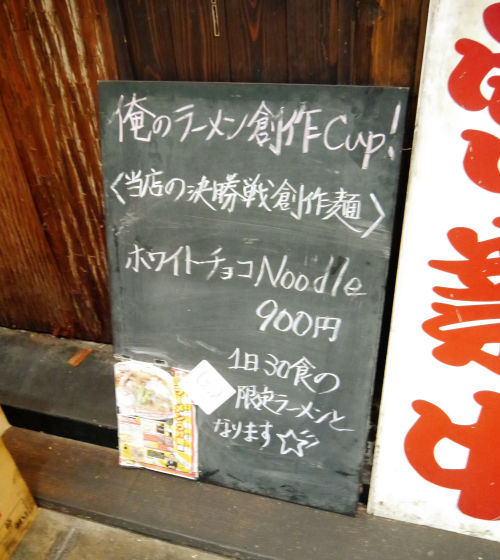 俺のラーメン創作Cup!
〈当店の決勝戦創作麺〉
ホワイトチョコNoodle
900円
1日30食の
限定ラーメンと
なります☆